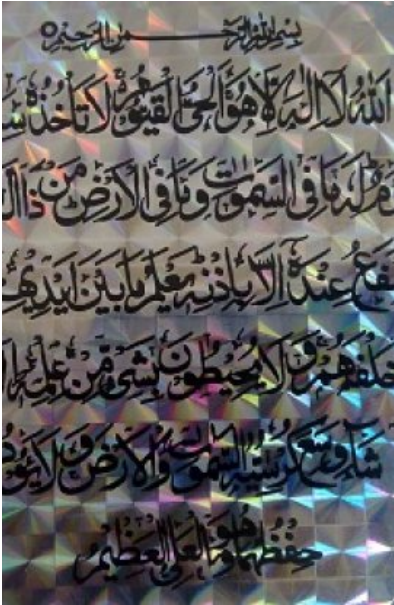 بِسْمِ اللهِ الرَّحْمٰنِ الرَّحِيْمِ
اَللهُ لَا اِلٰهَ اِلَّا هُوَ اَلْحَيُّ الْقَيُّوْمُ لَا تَأْخُذُهٗ
لَهٗ مَا فِى السَّمٰوٰتِ وَمَا فِى الْاَرْضِ مَنْ ذَا
عِنْدَهٗ اِلَّا بِاِذْنِهٖ يَعْلَمُ مَا بَيْنَ اَيْدِيْهِ
خَلْفَهُمْ وَ لَا يُحِيْطُوْنَ بِشَىْءٍ مِّنْ عِلْمِهٖ
شَآءَ وَسِعَ كُرْسِيُّهُ السَّمٰوٰتِ وَالْاَرْضَ وَ لَا
حِفْظُهُمَا وَهُوَ الْعَلِىُّ الْعَظِيْمُ